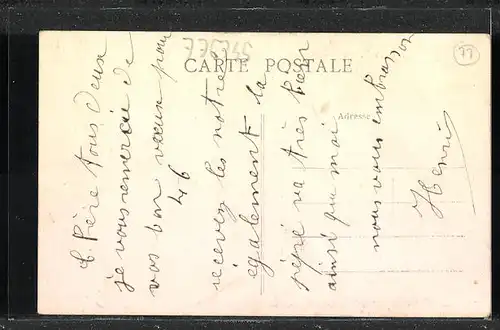 CARTE POSTALE
Adresse
77
775745
Père tous deux
je vous remercie de
vos bon vœux pour
46
recevez les notre
également la
pépé va très bien
ainsi que moi
nous vous embrassons
Henri